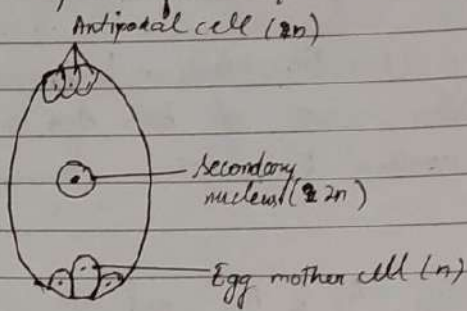 Antipodal cell (n)
Secondary
nucleus (2n)
Egg mother cell (n)